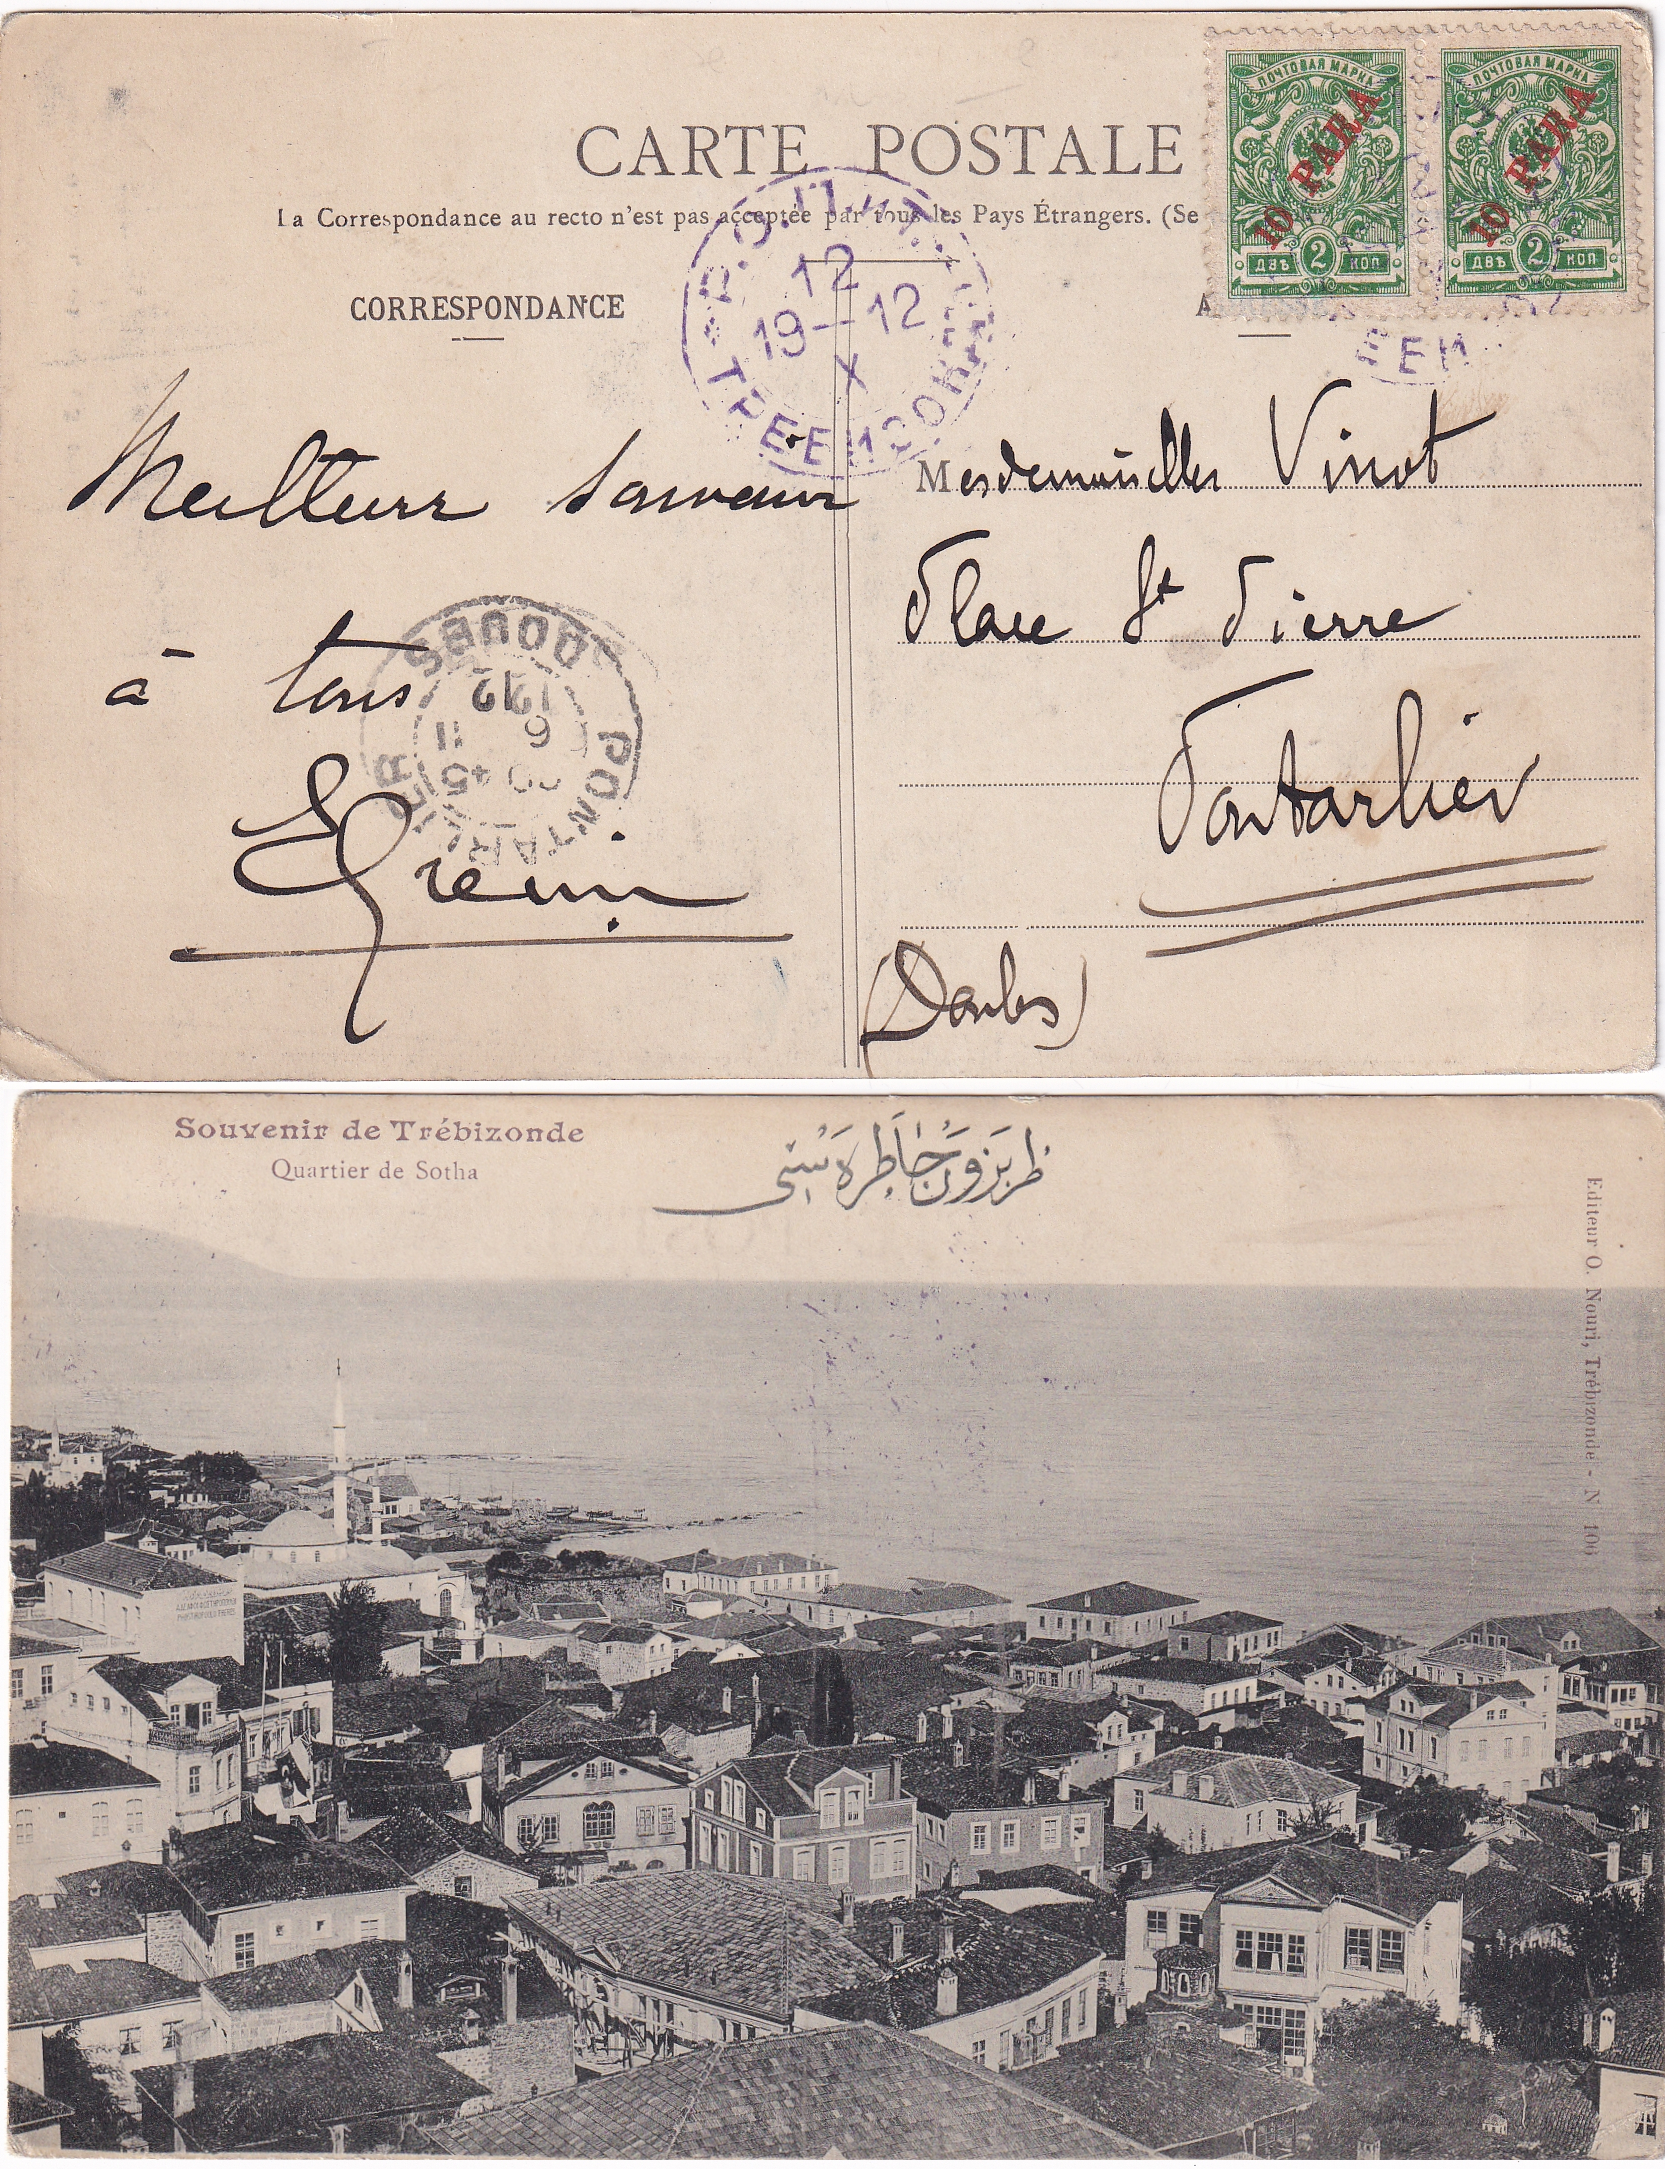 CARTE POSTALE
La Correspondance au recto n'est pas acceptée par tous les Pays Étrangers. (Se
CORRESPONDANCE
A
ПОЧТОВАЯ МАРКА
10 PARA
ДВѢ 2 КОП
ПОЧТОВАЯ МАРКА
10 PARA
ДВѢ 2 КОП
12
19-12
X
Meilleurs souvenirs
à tous
PONTARLIER
DOUBS
Mesdemoiselles Vinot
Place St Pierre
Pontarlier
(Doubs)
Souvenir de Trébizonde
Quartier de Sotha
طربزون خاطره سی
Editeur O. Nouri, Trébizonde - N 106